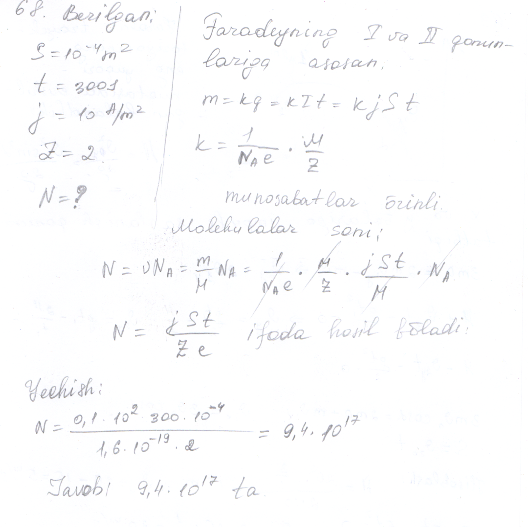 68. Berilgan;
S = 10⁻⁴ m²
t = 300 s
j = 10 A/m²
Z = 2.
N = ?
Faradeyning I va II qonun-
lariga asosan.
m = kq = kIt = kjSt
k = 1/(N_A e) · M/Z
munosabatlar o'rinli.
Molekulalar soni;
N = νN_A = m/M N_A = 1/(N_A e) · M/Z · jSt/M · N_A
N = jSt/(Ze) ifoda hosil bo'ladi.
Yechish:
N = (0,1 · 10² 300 · 10⁻⁴)/(1,6 · 10⁻¹⁹ · 2) = 9,4 · 10¹⁷
Javob: 9,4 · 10¹⁷ ta.